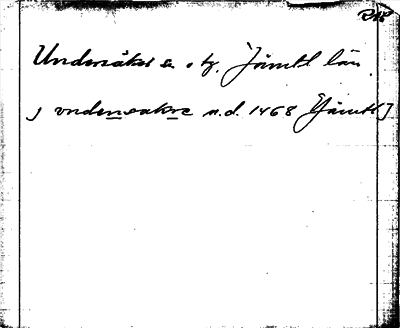 Undersåker sn o tg. Jämtl län
j vndersakre n.d. 1468 Jämtl]